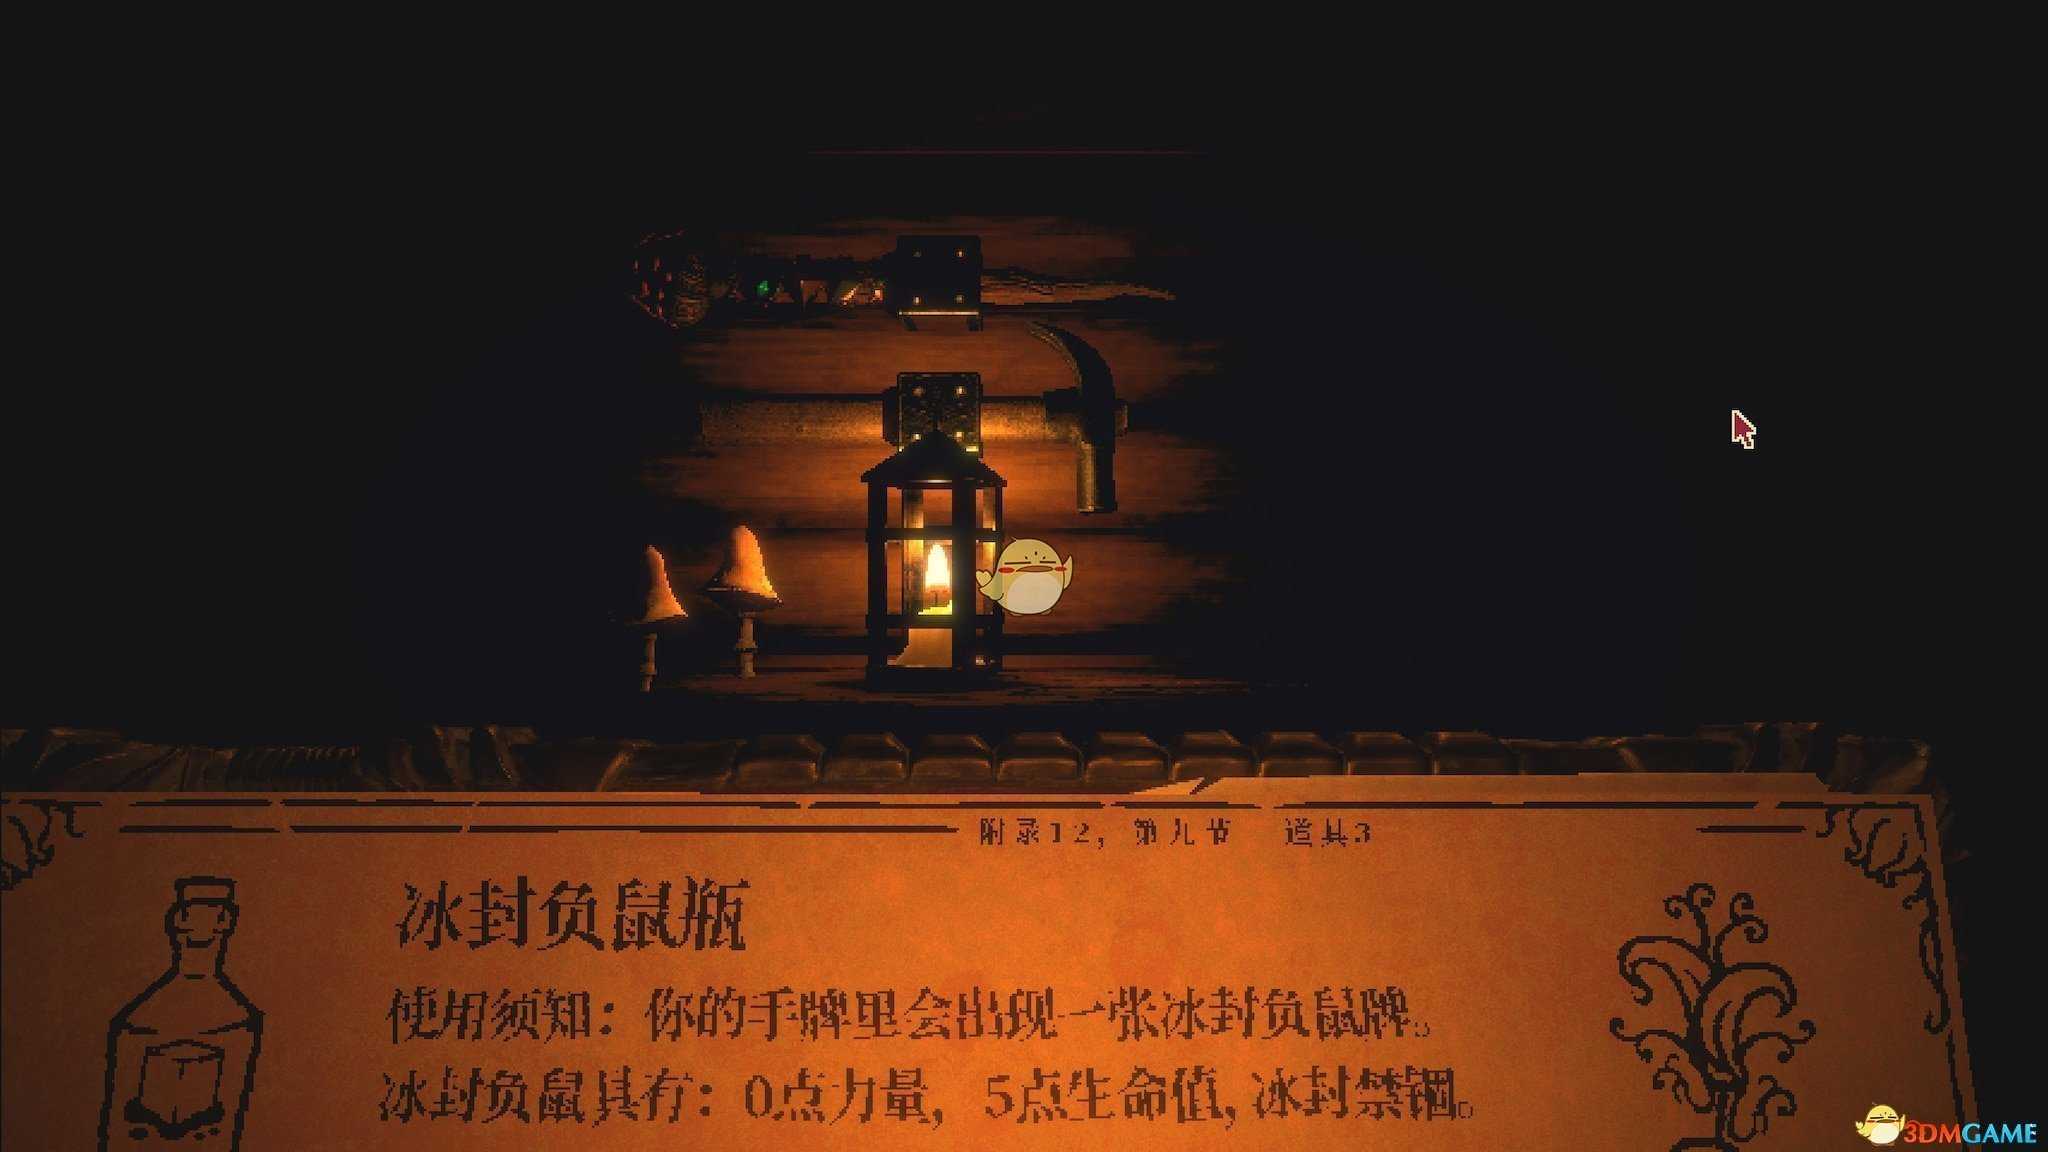 附录12，第九节 道具3
冰封负鼠瓶
使用须知：你的手牌里会出现一张冰封负鼠牌。
冰封负鼠具有：0点力量，5点生命值，冰封禁锢。
3DMGAME